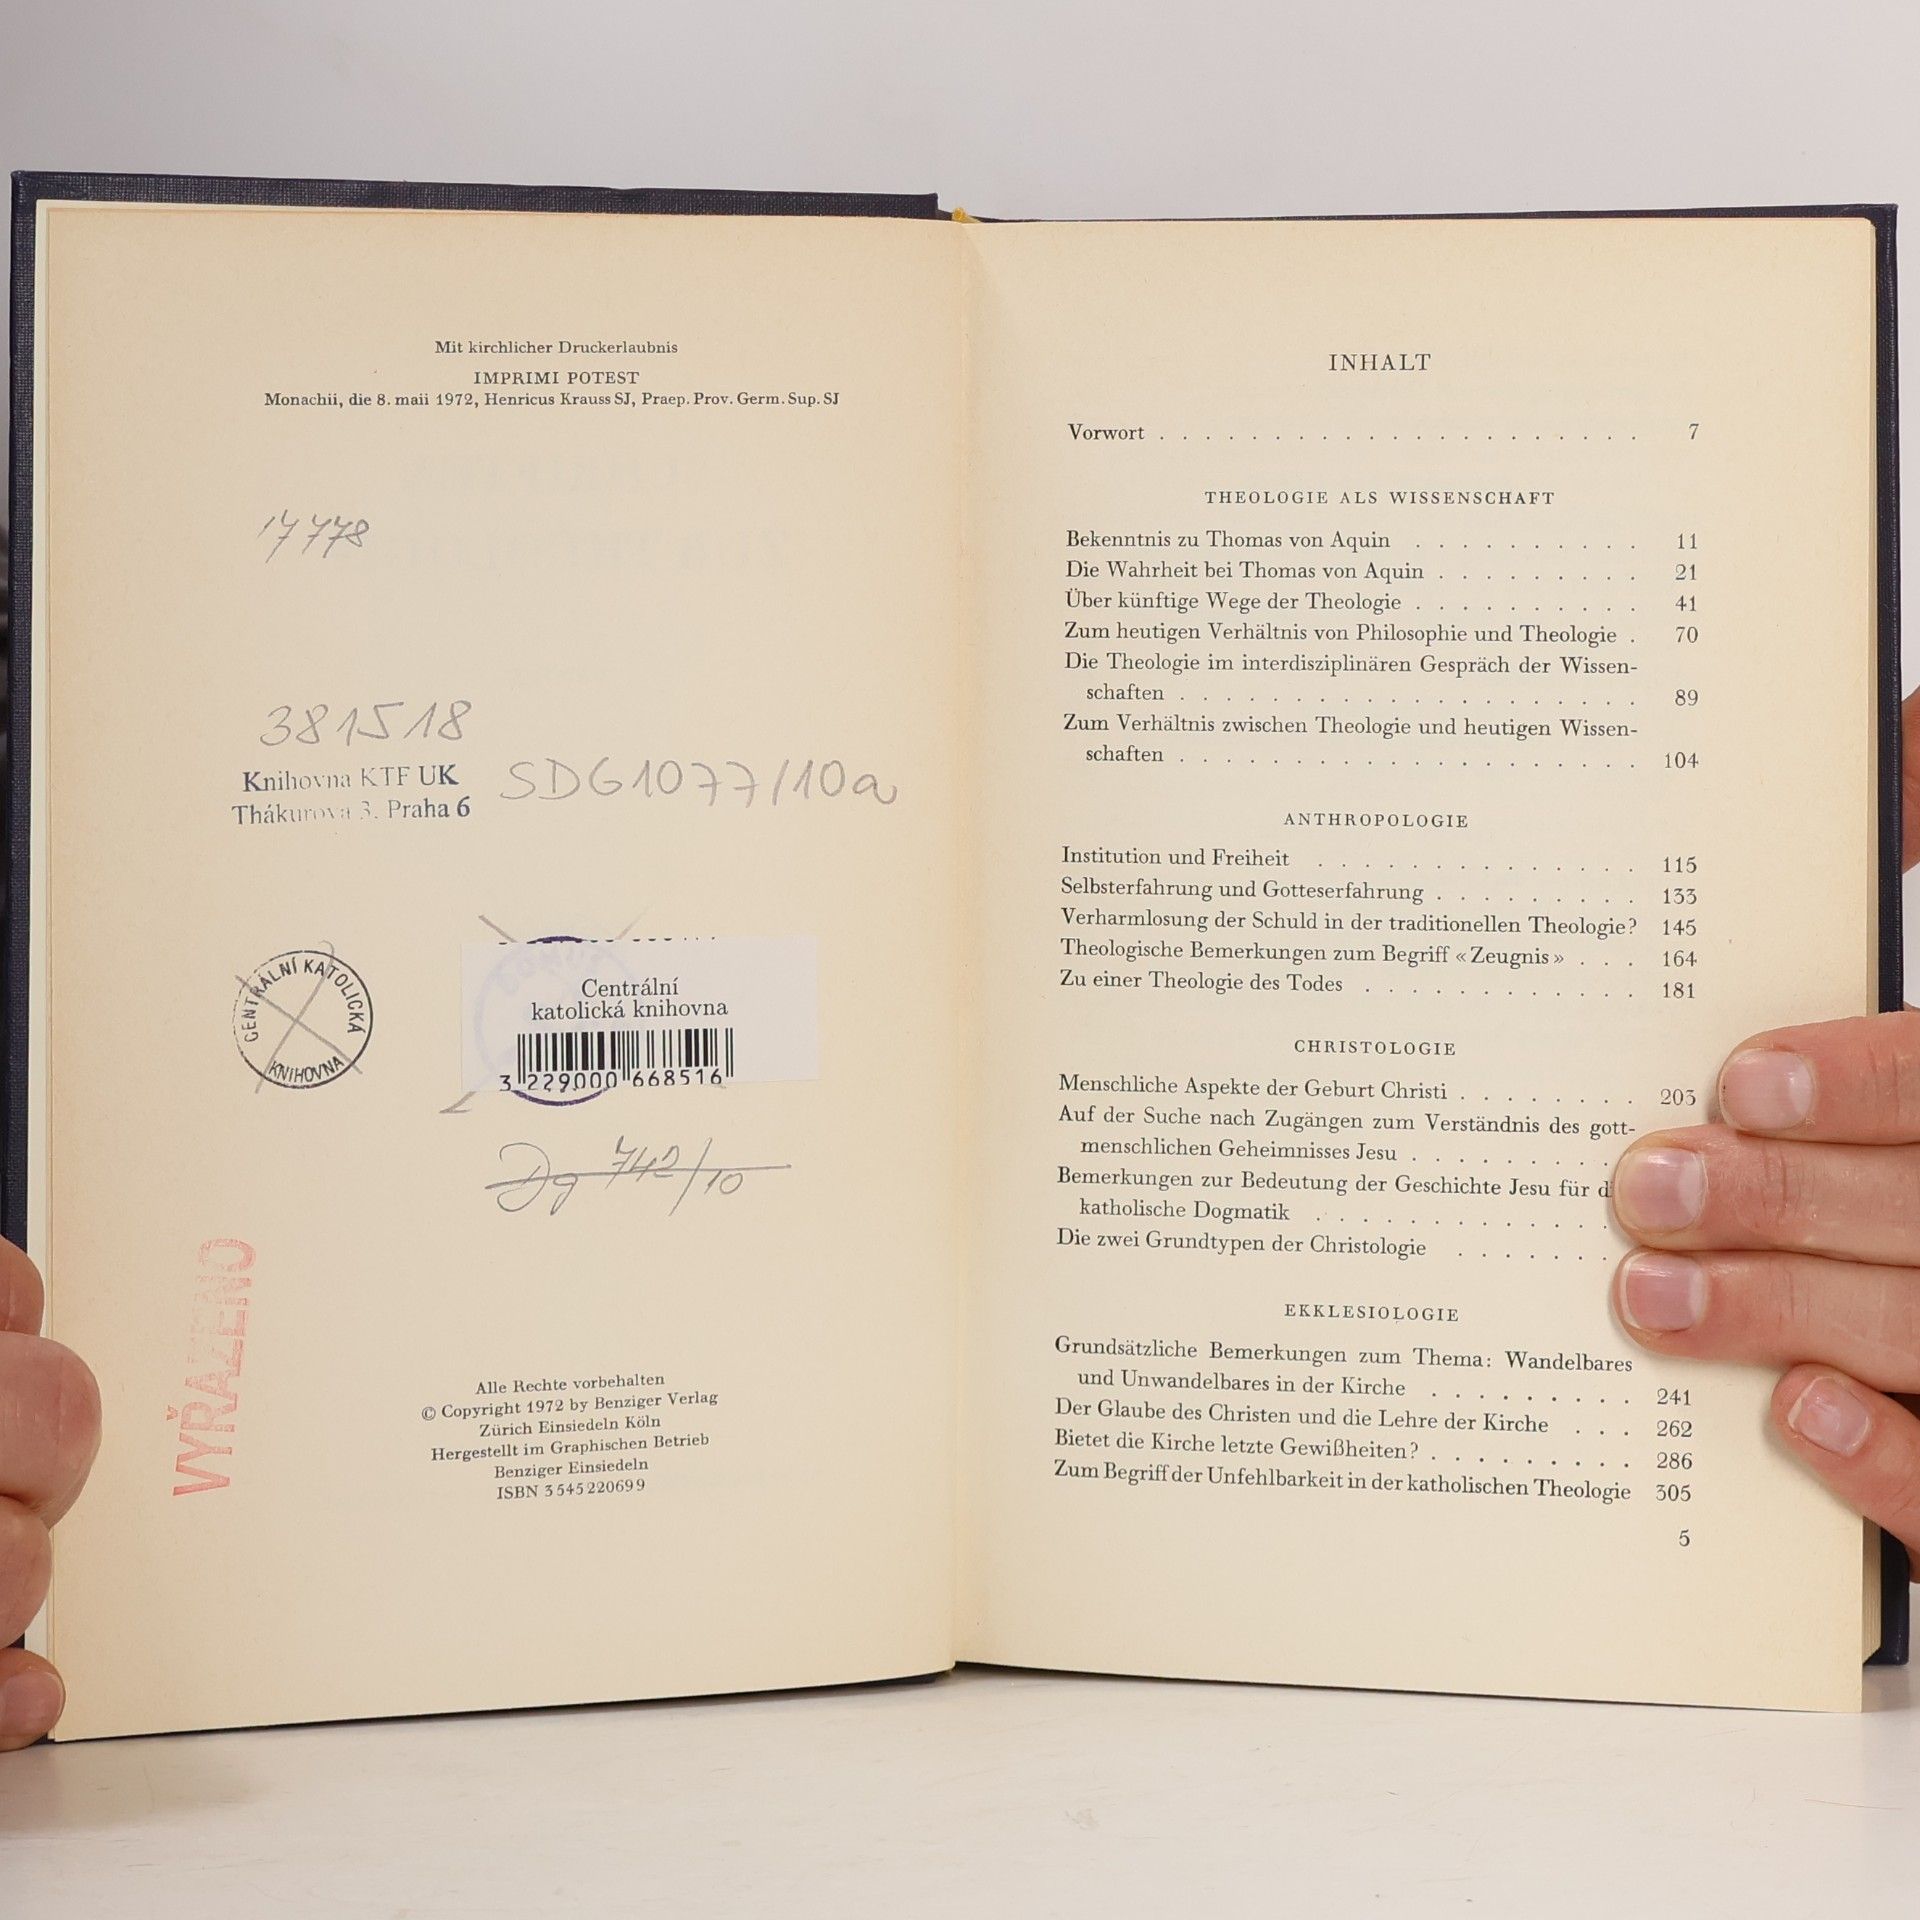 Mit kirchlicher Druckerlaubnis
IMPRIMI POTEST
Monachii, die 8. maii 1972, Henricus Krauss SJ, Praep. Prov. Germ. Sup. SJ
17778
381518
Knihovna KTF UK
Thákurova 3. Praha 6
SDG1077/10a
CENTRÁLNÍ KATOLICKÁ
KNIHOVNA
Centrální
katolická knihovna
3 229000 668516
Dg 742/10
VYŘAZENO
Alle Rechte vorbehalten
© Copyright 1972 by Benziger Verlag
Zürich Einsiedeln Köln
Hergestellt im Graphischen Betrieb
Benziger Einsiedeln
ISBN 3 545 22069 9
INHALT
Vorwort . . . . . . . . . . . . . . . . . . . . . 7
THEOLOGIE ALS WISSENSCHAFT
Bekenntnis zu Thomas von Aquin . . . . . . . . . . 11
Die Wahrheit bei Thomas von Aquin . . . . . . . . . 21
Über künftige Wege der Theologie . . . . . . . . . . 41
Zum heutigen Verhältnis von Philosophie und Theologie . 70
Die Theologie im interdisziplinären Gespräch der Wissen-
schaften . . . . . . . . . . . . . . . . . . . . 89
Zum Verhältnis zwischen Theologie und heutigen Wissen-
schaften . . . . . . . . . . . . . . . . . . . . 104
ANTHROPOLOGIE
Institution und Freiheit . . . . . . . . . . . . . . 115
Selbsterfahrung und Gotteserfahrung . . . . . . . . . 133
Verharmlosung der Schuld in der traditionellen Theologie? 145
Theologische Bemerkungen zum Begriff «Zeugnis» . . . 164
Zu einer Theologie des Todes . . . . . . . . . . . . 181
CHRISTOLOGIE
Menschliche Aspekte der Geburt Christi . . . . . . . . 203
Auf der Suche nach Zugängen zum Verständnis des gott-
menschlichen Geheimnisses Jesu . . . . . . . . .
Bemerkungen zur Bedeutung der Geschichte Jesu für
katholische Dogmatik . . . . . . . . . . . . .
Die zwei Grundtypen der Christologie . . . . . . .
EKKLESIOLOGIE
Grundsätzliche Bemerkungen zum Thema: Wandelbares
und Unwandelbares in der Kirche . . . . . . . . . 241
Der Glaube des Christen und die Lehre der Kirche . . . 262
Bietet die Kirche letzte Gewißheiten? . . . . . . . . . 286
Zum Begriff der Unfehlbarkeit in der katholischen Theologie 305
5